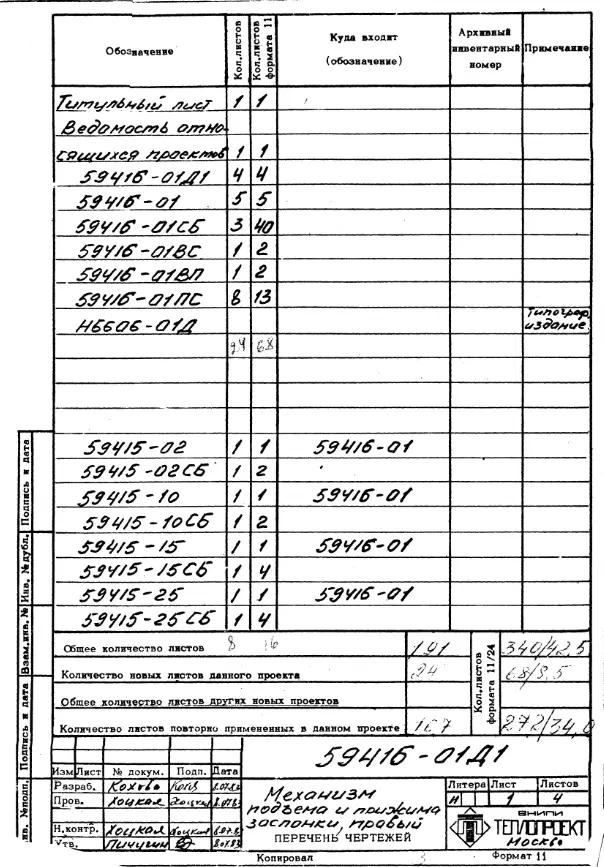 Обозначение Кол.листов Кол.листов формата 11 Куда входит (обозначение) Архивный инвентарный номер Примечание
Титульный лист 1 1
Ведомость отно-
сящихся проектов 1 1
59416-01Д1 4 4
59416-01 5 5
59416-01СБ 3 40
59416-01ВС 1 2
59416-01ВП 1 2
59416-01ПС 8 13
Н6606-01Д Типограф. издание
24 68
59415-02 1 1 59416-01
59415-02СБ 1 2
59415-10 1 1 59416-01
59415-10СБ 1 2
59415-15 1 1 59416-01
59415-15СБ 1 4
59415-25 1 1 59416-01
59415-25СБ 1 4
8 16
Общее количество листов 191 Кол.листов формата 11/24 340/42,5
Количество новых листов данного проекта 24 68/8,5
Общее количество листов других новых проектов
Количество листов повторно примененных в данном проекте 167 272/34,0
59416-01Д1
Изм Лист № докум. Подп. Дата
Разраб.
Пров. Хоцкая
Н.контр. Хоцкая
Утв. Пичугин
Механизм
подъема и прижима
заслонки, правый
ПЕРЕЧЕНЬ ЧЕРТЕЖЕЙ
Литера Лист Листов
И 1 4
ВНИПИ
ТЕПЛОПРОЕКТ
Москва
Копировал Формат 11
Подпись и дата
Инв. №дубл.
Взам.инв. №
Подпись и дата
Инв. №подл.